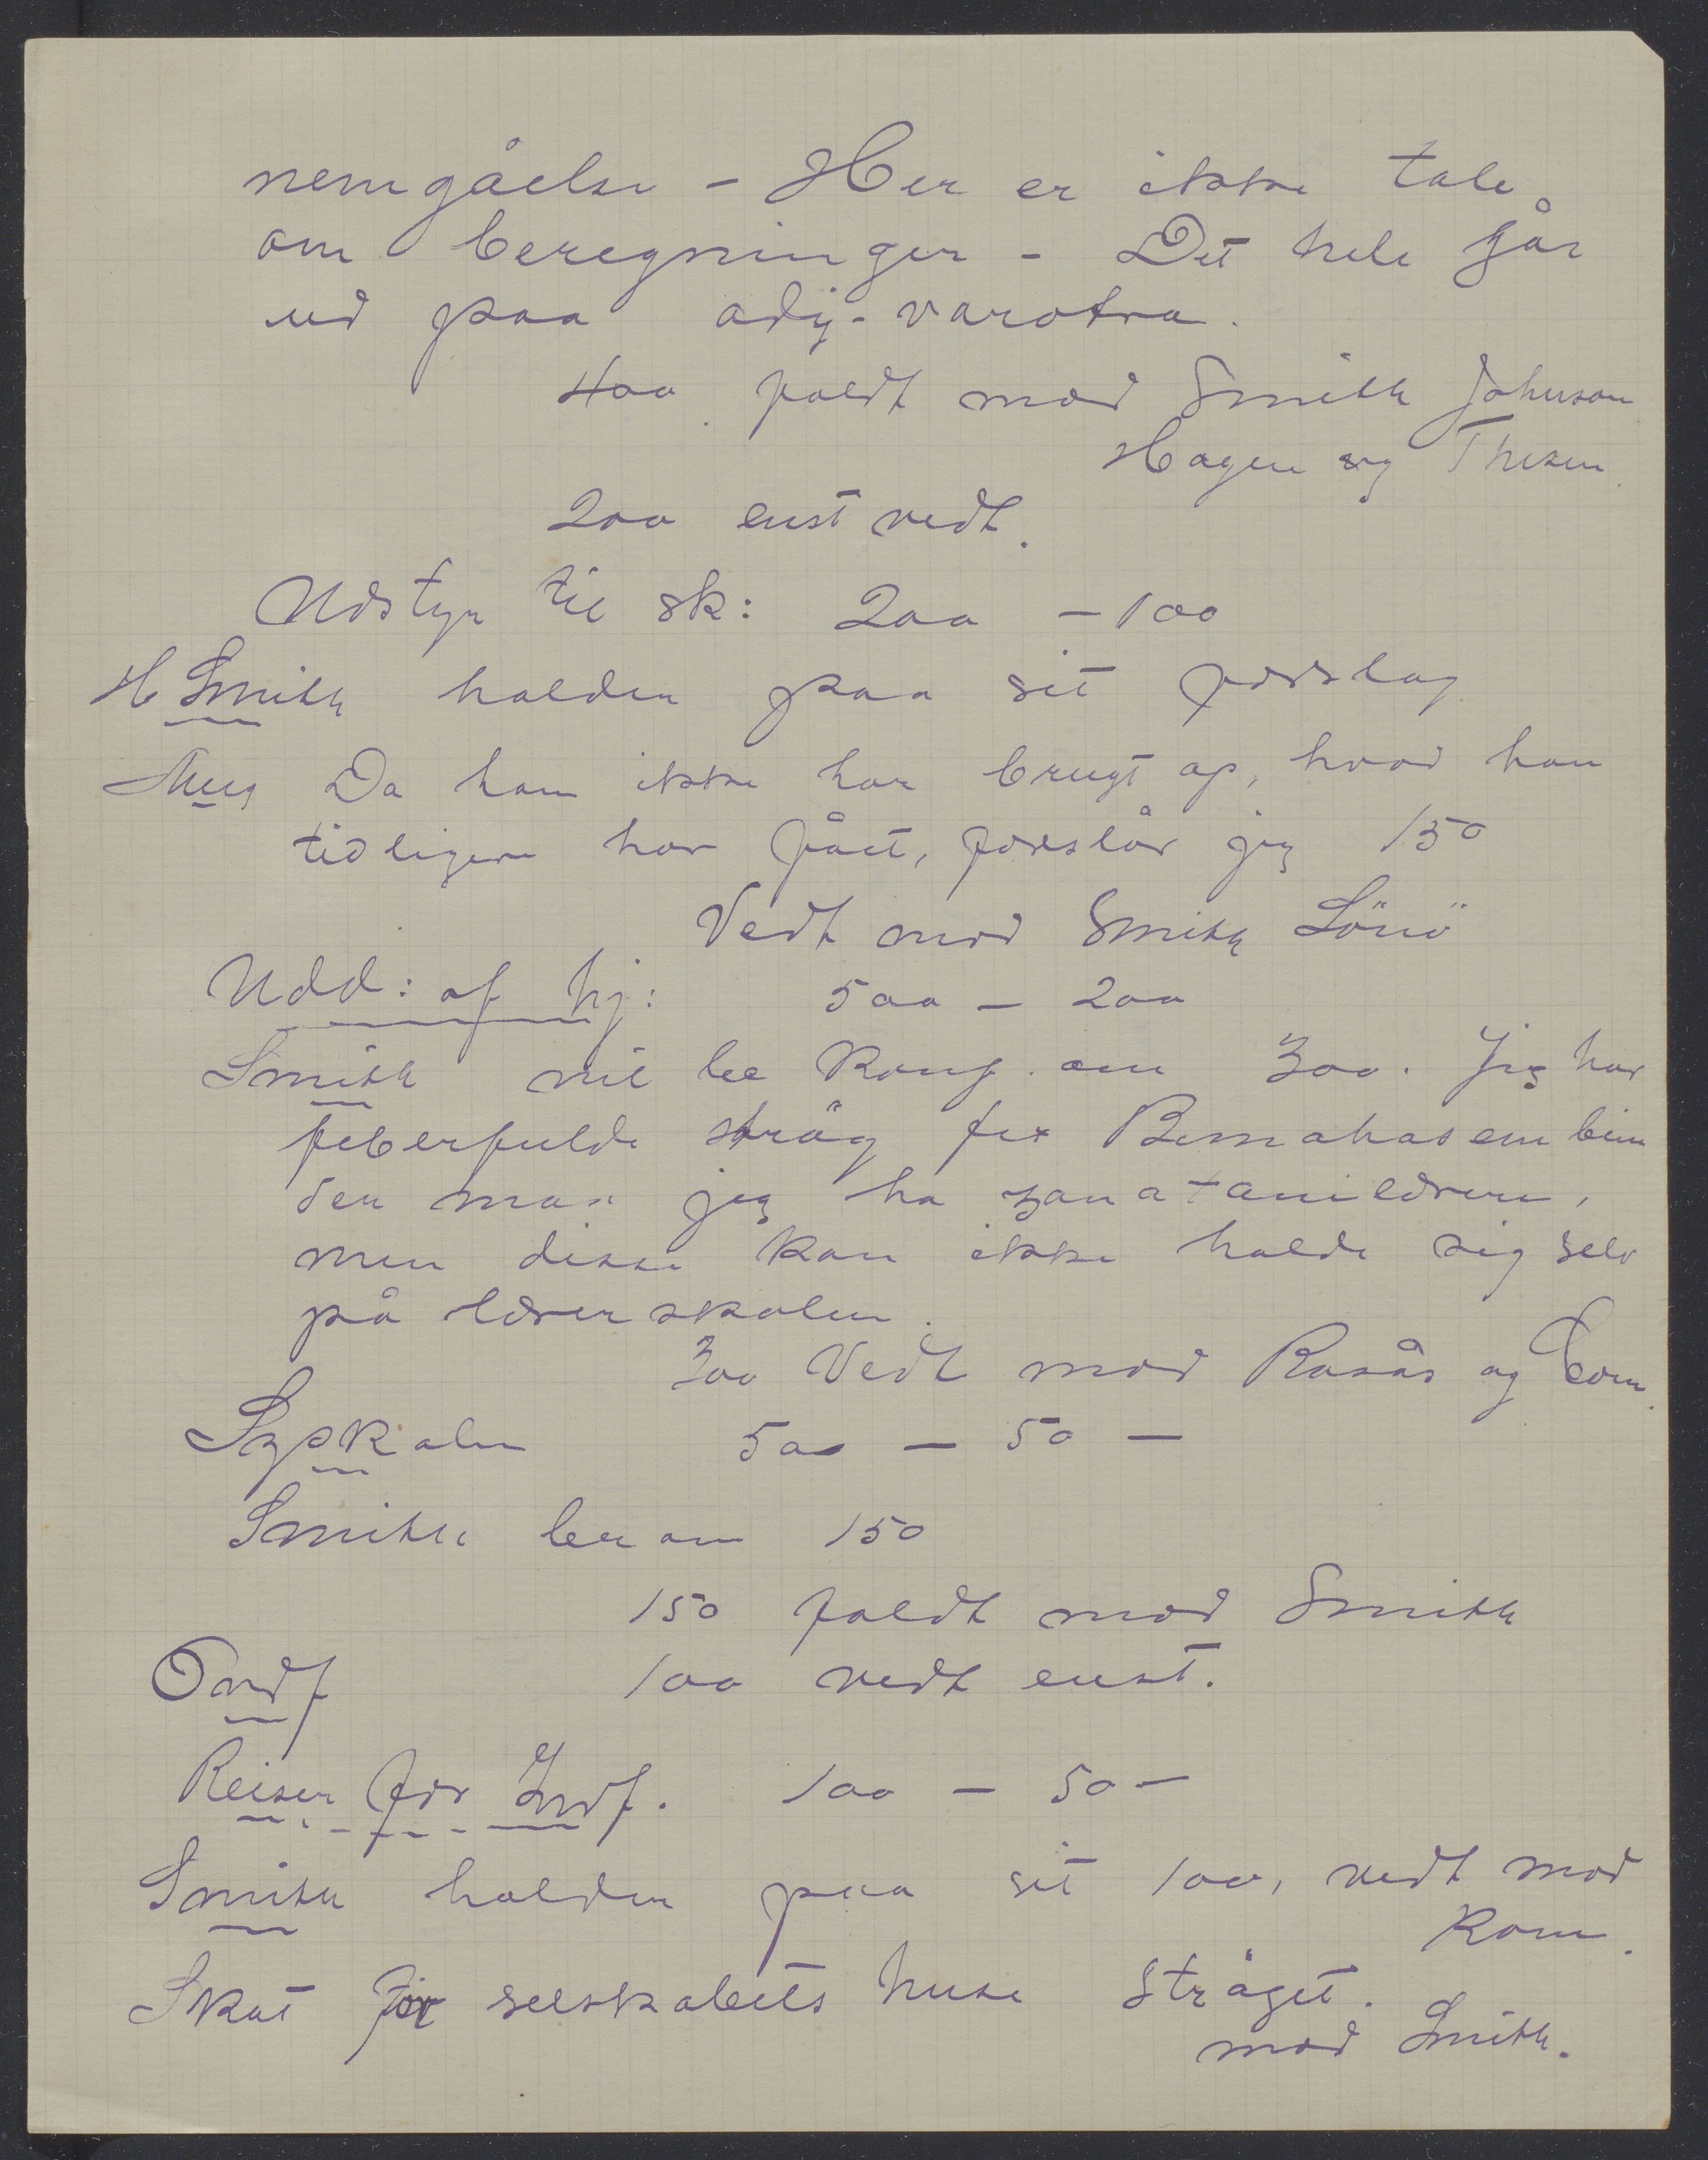 nemgåelse - Her er ikke tale
om beregninger - Det hele går
ud paa ady-varotra.
400 faldt mod Smith Johnson
Hagen og Thesen
200 enst vedt.
Udstyr til sk: 200 - 100
H Smith holder paa sit forslag
Da han ikke har brugt op, hvad han
tidligere har fået, forslår jeg 150
Vedt mod Smith Lönö
Udd: af hj: 500 - 200
Smith vil be Konf. om 300. Jeg har
feberfulde strøg fex Bemahasembim
der maa jeg ha zanatanilærere,
men disse kan ikke holde sig selv
på lærerskolen.
300 Vedt mod Rosås og Kom.
Syskolen 500 - 50 -
Smith ber om 150
150 faldt mod Smith
Ordf 100 vedt enst.
Reiser for Indf. 100 - 50 -
Smith holder paa sit 100, vedt mod
Kom.
Skat for selskabets huse strøget.
mod Smith.